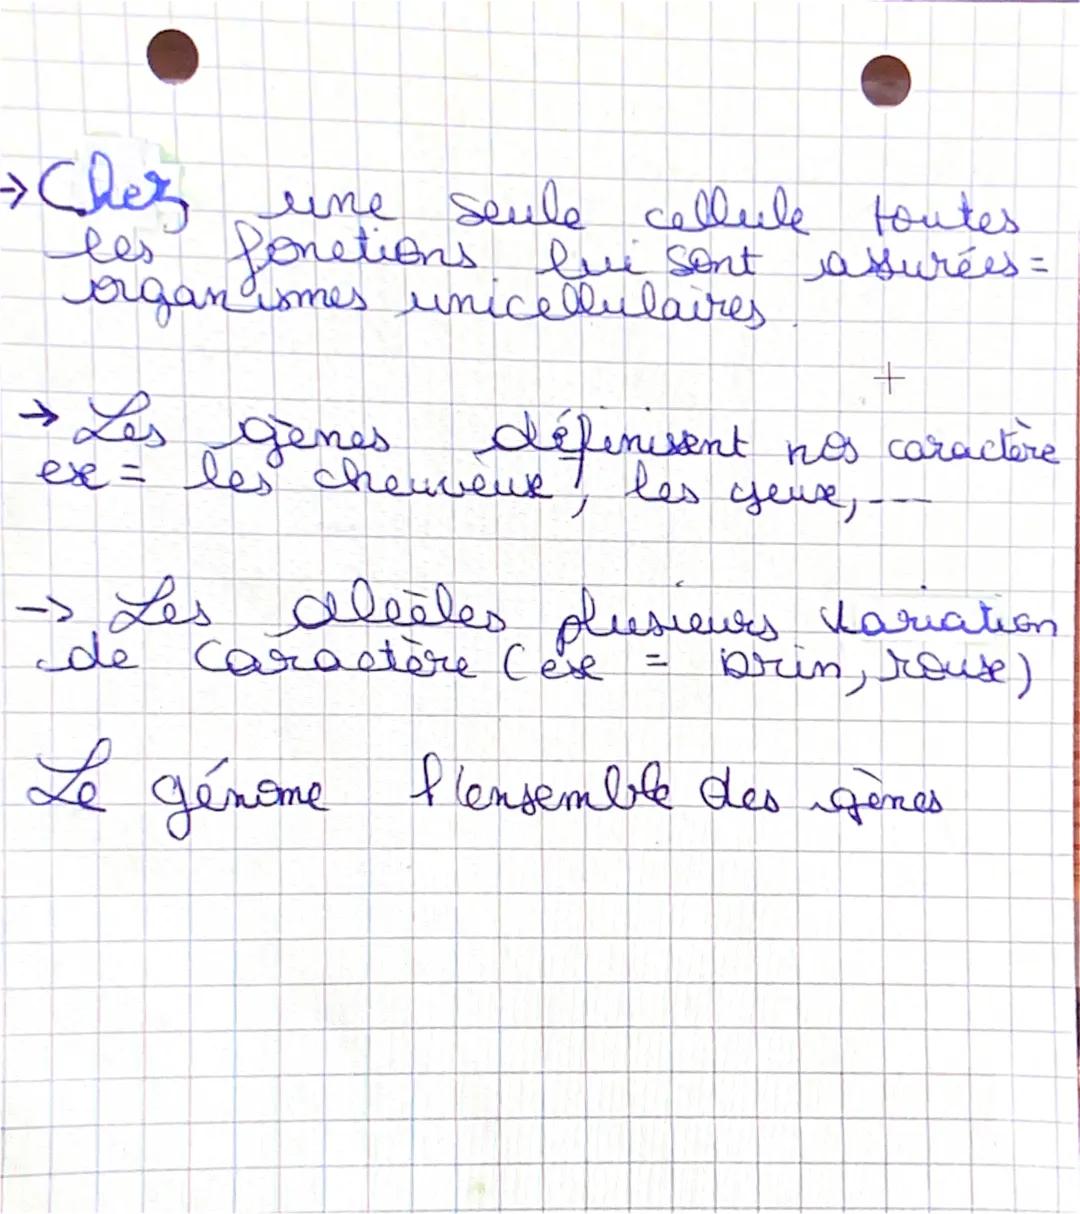 → Chez une seule cellule toutes
les fonctions lui sont assurées =
organismes unicellulaires.
→ Les gènes définisent nos caractère
ex = les cheuveux, les yeux, ---
-> Les aleèles plusieurs variation
de caractère (ex = brin, roux)
Le génome l'ensemble des gènes